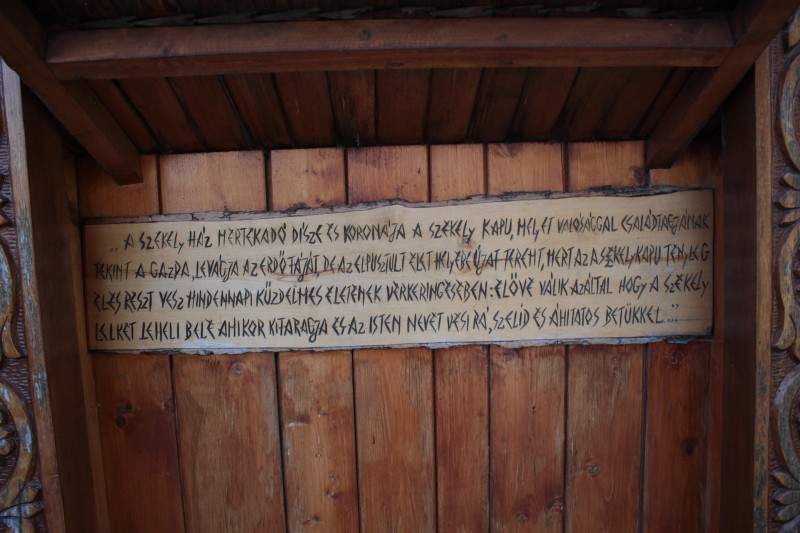 „A SZÉKELY HÁZ MÉRTÉKADÓ DÍSZE ÉS KORONÁJA A SZÉKELY KAPU, MELYET VALÓSÁGGAL CSALÁDTAGJÁNAK
TEKINT A GAZDA, LEVÁGJA AZ ERDŐ FÁJÁT DE AZ ELPUSZTULT ÉLET HELYÉBE ÚJAT TEREMT, MERT AZ A SZÉKELYKAPU TÉNYLEG
ÉL ÉS RÉSZT VESZ MINDENNAPI KÜZDELMES ÉLETÉNEK VÉRKERINGÉSÉBEN: ÉLŐVÉ VÁLIK AZÁLTAL HOGY A SZÉKELY
LELKET LEHELI BELÉ AMIKOR KIFARAGJA ÉS AZ ISTEN NEVÉT VÉSI RÁ, SZELÍD ÉS ÁHÍTATOS BETŰKKEL..."